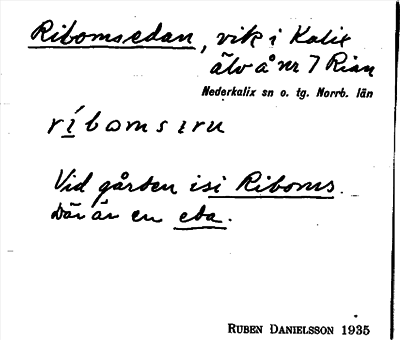 Ribomsedan, vik i Kalix
älv å nr 7 Rian
Nederkalix sn o. tg. Norrb. län
ríbomsıru
Vid gården isi Riboms.
Där är en eda.
RUBEN DANIELSSON 1935